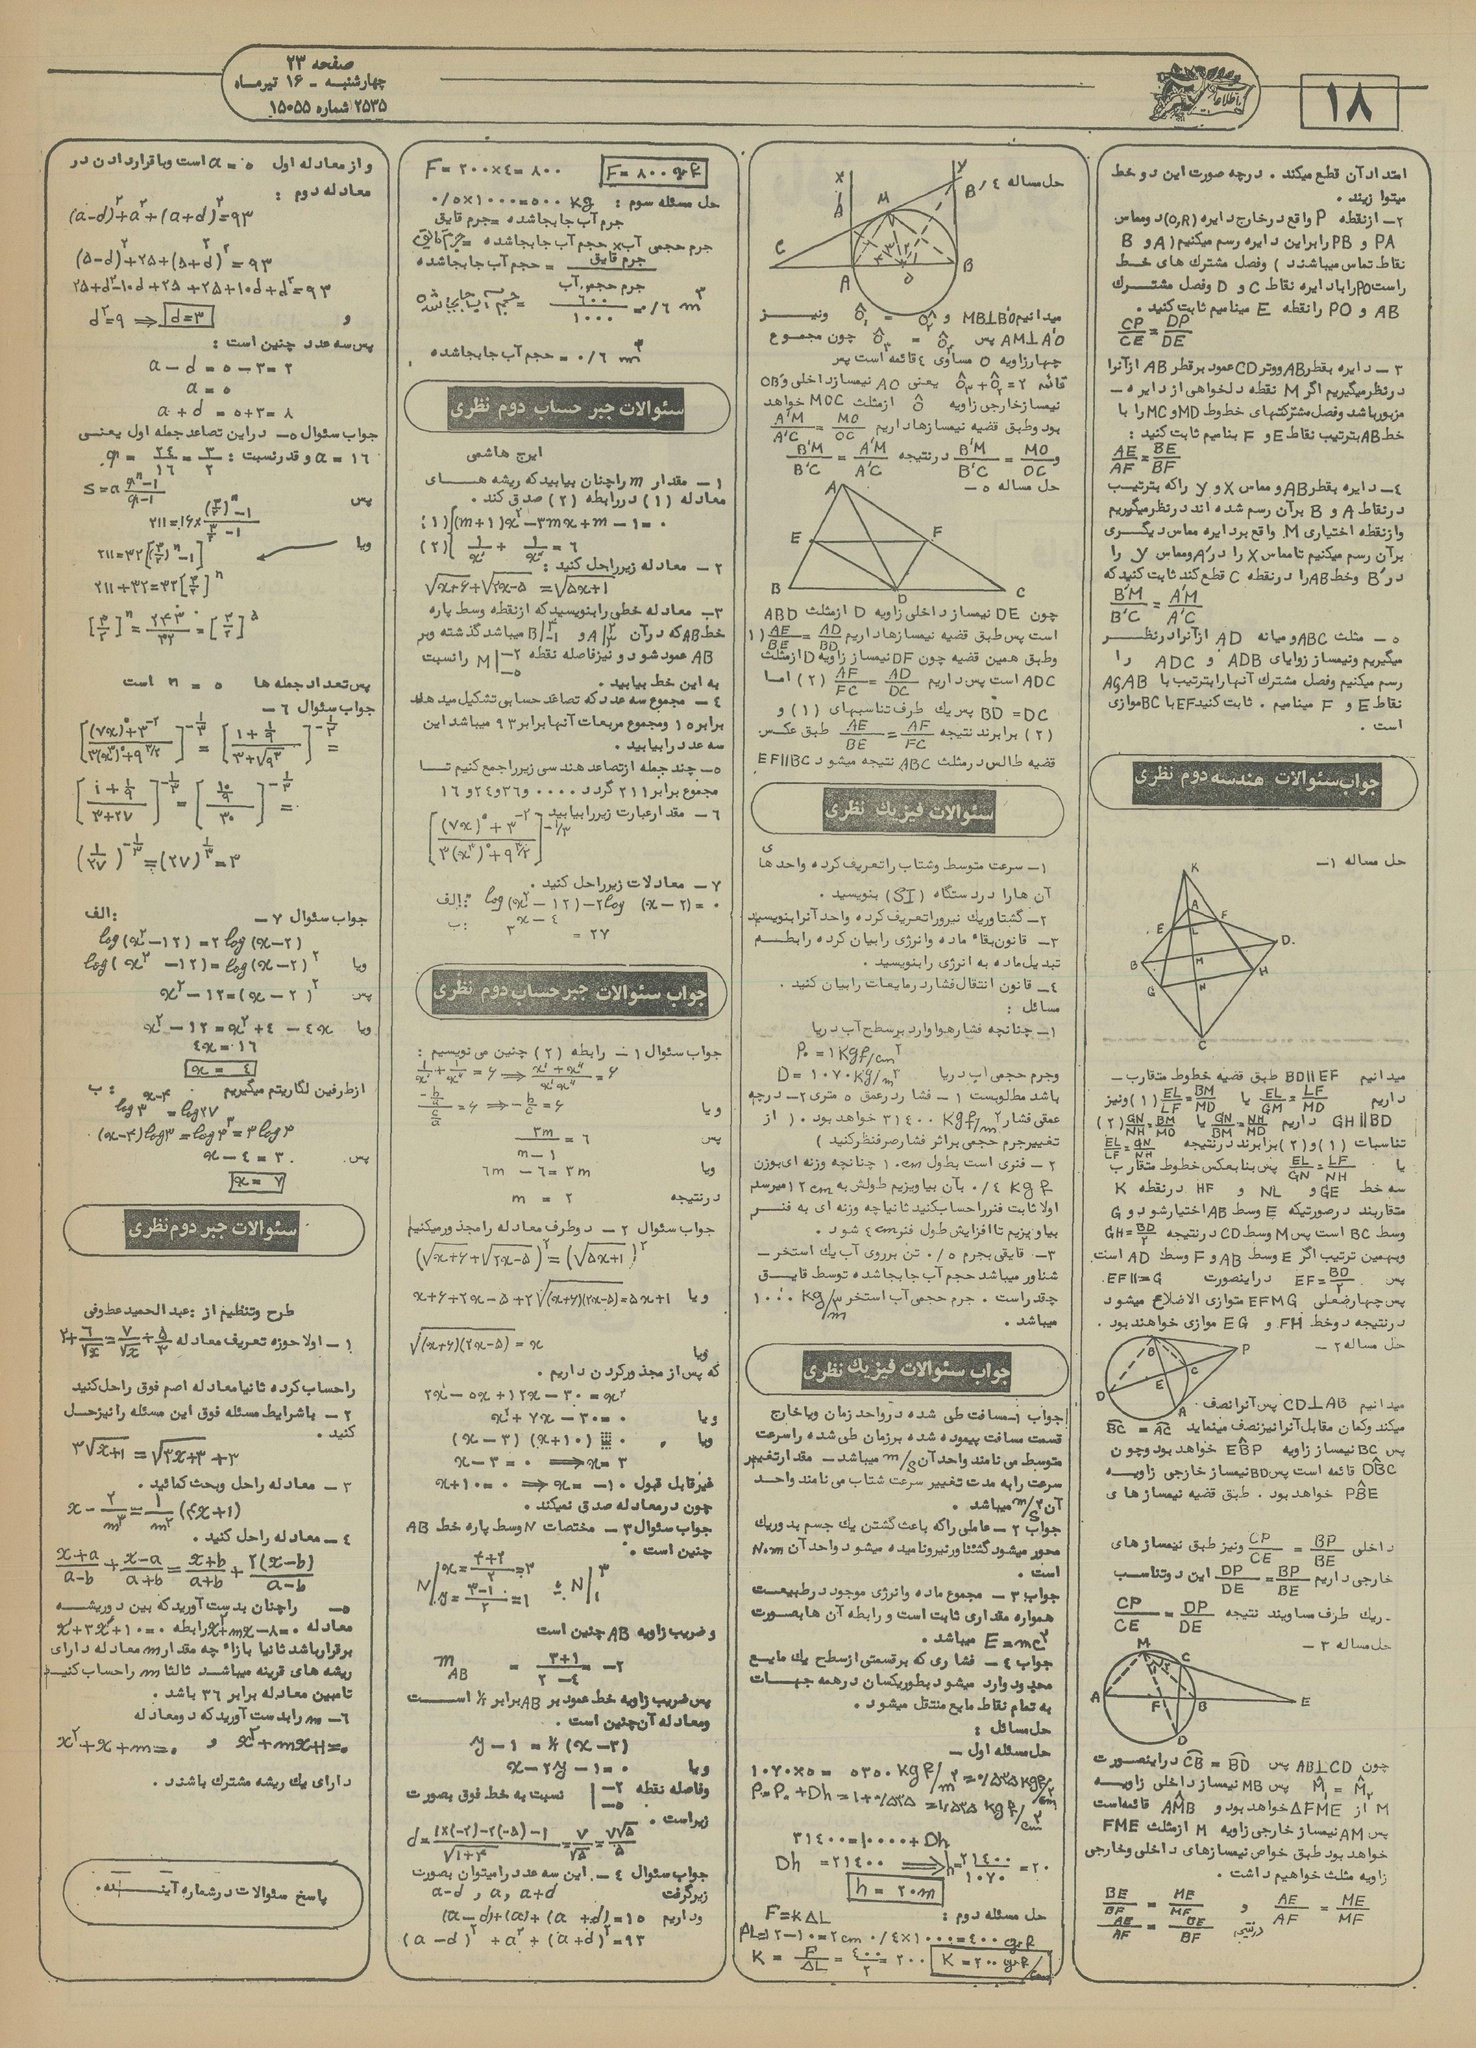 صفحه ۲۳
چهارشنبه - ۱۶ تیرماه
۲۵۳۵ شماره ۱۵۰۵۵
اطلاعات
۱۸
امتداد آن قطع میکند . در چه صورت این دو خط
میتوازیند .
۲- از نقطه P واقع در خارج دایره (O,R) دو مماس
PA و PB را بر این دایره رسم میکنیم (A و B
نقاط تماس میباشند) و فصل مشترک های خط
راست PO را با دایره نقاط C و D و فصل مشترک
AB و PO را نقطه E مینامیم ثابت کنید .
CP/CE = DP/DE
۳- دایره بقطر AB و وتر CD عمود بر قطر AB از آنرا
در نظر میگیریم اگر M نقطه دلخواهی از دایره -
مزبور باشد و فصل مشترکهای خطوط MD و MC را با
خط AB بترتیب نقاط E و F بنامیم ثابت کنید :
AE/AF = BE/BF
۴- دایره بقطر AB و مماس X و Y را که بترتیب
در نقاط A و B بر آن رسم شده اند در نظر میگیریم
و از نقطه اختیاری M واقع بر دایره مماس دیگری
بر آن رسم میکنیم تا مماس X را در A' و مماس Y را
در B' و خط AB را در نقطه C قطع کند ثابت کنید که
B'M/B'C = A'M/A'C
۵- مثلث ABC و میانه AD از آنرا در نظر
میگیریم و نیمساز زوایای ADB و ADC را
رسم میکنیم وفصل مشترک آنها را بترتیب با AB و AC
نقاط E و F مینامیم . ثابت کنید EF با BC موازی
است .
جواب سئوالات هندسه دوم نظری
حل مساله ۱-
K
A
E F
L
B M D
G N H
C
میدانیم BD∥EF طبق قضیه خطوط متقارب -
داریم EL/LF = BM/MD یا EL/GM = LF/MD (۱) ونیز
GH∥BD داریم GN/NH = BM/MD یا GN/BM = NH/MD (۲)
تناسبات (۱) و (۲) برابرند در نتیجه EL/LF = GN/NH
یا EL/GN = LF/NH پس بنا بعکس خطوط متقارب
سه خط GE و NL و HF در نقطه K
متقاربند در صورتیکه E وسط AB اختیار شود و G
وسط BC است پس M وسط CD در نتیجه GH=BD/۲
وبهمین ترتیب اگر E وسط AB و F وسط AD است
پس EF=BD/۲ در اینصورت EF∥=G
پس چهار ضلعی EFMG متوازی الاضلاع میشود
در نتیجه دو خط FH و EG موازی خواهند بود .
حل مساله ۲-
B P C E D A
میدانیم CD⊥AB پس آنرا نصف
میکند وکمان مقابل آنرا نیز نصف مینماید BC = AC
پس BC نیمساز زاویه EBP خواهد بود وچون
DBC قائمه است پس BD نیمساز خارجی زاویه
PBE خواهد بود . طبق قضیه نیمسازهای
داخلی CP/CE = BP/BE ونیز طبق نیمسازهای
خارجی داریم DP/DE = BP/BE این دو تناسب
ریک طرف مساویند نتیجه CP/CE = DP/DE
حل مساله ۳-
M C A F B E D
چون AB⊥CD پس CB = BD در اینصورت
M۱ = M۲ پس MB نیمساز داخلی زاویه
M از ΔFME خواهد بود و AMB قائمه است
پس AM نیمساز خارجی زاویه M از مثلث FME
خواهد بود طبق خواص نیمسازهای داخلی وخارجی
زاویه مثلث خواهیم داشت .
BE/BF = ME/MF و AE/AF = ME/MF
AE/AF = BE/BF درنتیجه
حل مساله ۴/
X Y A' M B' C A O B
میدانیم MB⊥B'O و O۱ = O۲ ونیز
AM⊥A'O پس O۳ = O۴ چون مجموع
چهار زاویه O مساوی ۴ قائمه است پس
۲ = O۲+O۳ قائمه یعنی A'O نیمساز داخلی و OB'
نیمساز خارجی زاویه O از مثلث MOC خواهد
بود وطبق قضیه نیمسازها داریم A'M/A'C = MO/OC
و B'M/B'C = MO/OC در نتیجه B'M/B'C = A'M/A'C
حل مساله ۵-
A E F B D C
چون DE نیمساز داخلی زاویه D از مثلث ABD
است پس طبق قضیه نیمسازها داریم AE/BE = AD/BD (۱
وطبق همین قضیه چون DF نیمساز زاویه D از مثلث
ADC است پس داریم AF/FC = AD/DC (۲) اما
BD = DC پس یک طرف تناسبهای (۱) و
(۲) برابرند نتیجه AE/BE = AF/FC طبق عکس
قضیه طالس در مثلث ABC نتیجه میشود EF∥BC
سئوالات فیزیک نظری
۱- سرعت متوسط وشتاب را تعریف کرده واحدهای
آن ها را در دستگاه (SI) بنویسید .
۲- گشتاور یک نیرو را تعریف کرده واحد آنرا بنویسید
۳- قانون بقاء ماده وانرژی را بیان کرده رابطه
تبدیل ماده به انرژی را بنویسید .
۴- قانون انتقال فشار در مایعات را بیان کنید .
مسائل :
۱- چنانچه فشار هوا وارد بر سطح آب دریا
P۰ = ۱ Kgf/cm۲
وجرم حجمی آب دریا D = ۱۰۷۰ Kg/m۳
باشد مطلوبست ۱- فشار در عمق ۵ متری ۲- در چه
عمقی فشار ۳۱۴۰۰ Kgf/m۲ خواهد بود . ( از
تغییر جرم حجمی بر اثر فشار صرفنظر کنید )
۲- فنری است بطول ۱۰cm چنانچه وزنه ای بوزن
۰/۴ Kgf بآن بیاویزیم طولش به ۱۲cm میرسد
اولا ثابت فنر را حساب کنید ثانیا چه وزنه ای به فنر
بیاویزیم تا افزایش طول فنر ۴cm شود .
۳- قایقی بجرم ۰/۵ تن بر روی آب یک استخر -
شناور میباشد حجم آب جابجا شده توسط قایق
چقدر است . جرم حجمی آب استخر ۱۰۰۰ kg/m۳
میباشد .
جواب سئوالات فیزیک نظری
جواب ۱- مسافت طی شده در واحد زمان ویا خارج
قسمت مسافت پیموده شده بر زمان طی شده را سرعت
متوسط می نامند واحد آن m/s میباشد - مقدار تغییر
سرعت را به مدت تغییر سرعت شتاب می نامند واحد
آن m/s۲ میباشد .
جواب ۲- عاملی را که باعث گشتن یک جسم بدور یک
محور میشود گشتاور نیرو نامیده میشود واحد آن N.m
است .
جواب ۳- مجموع ماده وانرژی موجود در طبیعت
همواره مقداری ثابت است و رابطه آن ها بصورت
E = mc۲ میباشد .
جواب ۴- فشاری که بر قسمتی از سطح یک مایع
محدود وارد میشود بطور یکسان در همه جهات
به تمام نقاط مایع منتقل میشود .
حل مسائل :
حل مسئله اول -
۱۰۷۰×۵ = ۵۳۵۰ kgf/m۲ = ۰/۵۳۵ kgf/cm۲
P=P۰+Dh = ۱+۰/۵۳۵ = ۱/۵۳۵ kgf/cm۲
۳۱۴۰۰=۱۰۰۰۰+Dh
Dh = ۲۱۴۰۰ ⟹ h = ۲۱۴۰۰/۱۰۷۰ = ۲۰
h = ۲۰m
حل مسئله دوم : F=KΔL
ΔL=۱۲-۱۰=۲cm ۰/۴×۱۰۰۰=۴۰۰ grf
K = F/ΔL = ۴۰۰/۲ = ۲۰۰ K = ۲۰۰ grf/cm
F = ۲۰۰×۴ = ۸۰۰ F = ۸۰۰ grf
حل مسئله سوم : ۰/۵×۱۰۰۰=۵۰۰ kg
جرم آب جابجا شده = جرم قایق
جرم حجمی آب × حجم آب جابجا شده = جرم قایق
جرم قایق/جرم حجمی آب = حجم آب جابجا شده
۶۰۰/۱۰۰۰ = ۰/۶ m۳ حجم آب جابجا شده
حجم آب جابجا شده = ۰/۶ m۳
سئوالات جبر حساب دوم نظری
ایرج هاشمی
۱- مقدار m را چنان بیابید که ریشه های
معادله (۱) در رابطه (۲) صدق کند .
(۱) (m+۱)x۲ - ۳mx + m - ۱ = ۰
(۲) ۱/x' + ۱/x'' = ۶
۲- معادله زیر را حل کنید :
√x+۶ + √۲x-۵ = √۵x+۱
۳ب معادله خطی را بنویسید که از نقطه وسط پاره
خط AB که در آن A|۲ ۳ و B|۴ -۱ میباشد گذشته وبر
AB عمود شود و نیز فاصله نقطه M|-۲ -۵ را نسبت
به این خط بیابید .
۴- مجموع سه عدد که تصاعد حسابی تشکیل میدهند
برابر ۱۵ ومجموع مربعات آنها برابر ۹۳ میباشد این
سه عدد را بیابید .
۵- چند جمله از تصاعد هندسی زیر را جمع کنیم تا
مجموع برابر ۲۱۱ گردد ۰۰۰۰ و۳۶ و۲۴ و ۱۶
۶- مقدار عبارت زیر را بیابید
[((۷x)۰ + ۳-۲)/(۳(x۳)۰ + ۹۳/۲)]-۱/۳
۷- معادلات زیر را حل کنید .
الف: log(x۲-۱۲) - ۲log (x-۲) = ۰
ب: ۳x-۴ = ۲۷
جواب سئوالات جبر حساب دوم نظری
جواب سئوال ۱- رابطه (۲) چنین می نویسیم :
۱/x' + ۱/x'' = ۶ ⟹ (x'+x'')/x'x'' = ۶
و یا (-b/a)/(c/a) = ۶ ⟹ -b/c = ۶
پس ۳m/(m-۱) = ۶
ویا ۶m - ۶ = ۳m
در نتیجه m = ۲
جواب سئوال ۲- دو طرف معادله را مجذور میکنیم
(√x+۶+√۲x-۵)۲ = (√۵x+۱)۲
و یا x+۶+۲x-۵+۲√(x+۶)(۲x-۵) = ۵x+۱
ویا √(x+۶)(۲x-۵) = x
که پس از مجذور کردن داریم .
۲x۲-۵x+۱۲x-۳۰=x۲
و یا x۲+۷x-۳۰=۰
ویا (x-۳)(x+۱۰) = ۰
x-۳ = ۰ ⟹ x=۳
غیر قابل قبول x+۱۰=۰ ⟹ x=-۱۰
چون در معادله صدق نمیکند .
جواب سئوال ۳- مختصات N وسط پاره خط AB
چنین است .
N| x=(۴+۲)/۲=۳ y=(۳-۱)/۲=۱ N|۳ ۱
و ضریب زاویه AB چنین است
mAB = (۳+۱)/(۲-۴) = -۲
پس ضریب زاویه خط عمود بر AB برابر ½ است
ومعادله آن چنین است .
y-۱ = ½(x-۳)
ویا x-۲y-۱=۰
وفاصله نقطه |-۲ -۵ نسبت به خط فوق بصورت
زیر است .
d = (۱×(-۲)-۲(-۵)-۱)/√۱+۴ = ۷/√۵ = ۷√۵/۵
جواب سئوال ۴- این سه عدد را میتوان بصورت
زیر گرفت a-d , a , a+d
و داریم (a-d)+(a)+(a+d) = ۱۵
(a-d)۲+a۲+(a+d)۲=۹۳
و از معادله اول a = ۵ است وبا قرار دادن در
معادله دوم :
(a-d)۲+a۲+(a+d)۲=۹۳
(۵-d)۲+۲۵+(۵+d)۲=۹۳
۲۵+d۲-۱۰d+۲۵+۲۵+۱۰d+d۲=۹۳
و d۲=۹ ⟹ d=۳
پس سه عدد چنین است :
a - d = ۵-۳=۲
a = ۵
a + d = ۵+۳=۸
جواب سئوال ۵- در این تصاعد جمله اول یعنی
a = ۱۶ و قدر نسبت : q = ۲۴/۱۶ = ۳/۲
S = a (qn-۱)/(q-۱)
پس ۲۱۱=۱۶×((۳/۲)n-۱)/(۳/۲-۱)
ویا ۲۱۱=۳۲[(۳/۲)n-۱]
۲۱۱+۳۲=۳۲[۳/۲]n
[۳/۲]n = ۲۴۳/۳۲ = [۳/۲]۵
پس تعداد جمله ها n = ۵ است
جواب سئوال ۶-
[((۷x)۰+۳-۲)/(۳(x۳)۰+۹۳/۲)]-۱/۳ = [(۱+۱/۹)/(۳+√۹۳)]-۱/۳ =
[(۱+۱/۹)/(۳+۲۷)]-۱/۳ = [(۱۰/۹)/۳۰]-۱/۳ =
(۱/۲۷)-۱/۳ = (۲۷)۱/۳ = ۳
جواب سئوال ۷- الف:
log(x۲-۱۲) = ۲log(x-۲)
ویا log(x۲-۱۲) = log(x-۲)۲
پس x۲-۱۲=(x-۲)۲
ویا x۲-۱۲=x۲+۴-۴x
۴x=۱۶
x = ۴
ازطرفین لگاریتم میگیریم ب:
log۳x-۴ = log۲۷
(x-۴)log۳ = log۳۳ = ۳log۳
پس x-۴=۳
x = ۷
سئوالات جبر دوم نظری
طرح وتنظیم از : عبدالحمید عطوفی
۱- اولا حوزه تعریف معادله ۲+۶/√x = ۷/√x + ۵/۳
را حساب کرده ثانیا معادله اصم فوق را حل کنید
۲- با شرایط مسئله فوق این مسئله را نیز حل
کنید .
۳√x+۱ = √۳x+۳ +۳
۳- معادله را حل وبحث کمائید .
x - ۲/m۳ = ۱/m۲ (۴x+۱)
۴- معادله را حل کنید .
(x+a)/(a-b) + (x-a)/(a+b) = (x+b)/(a+b) + ۲(x-b)/(a-b)
۵- را چنان بدست آورید که بین دو ریشه
معادله x۲+mx-۸=۰ رابطه x'+۳x''+۱۰=۰
برقرار باشد ثانیا بازاء چه مقدار m معادله دارای
ریشه های قرینه میباشد ثالثا m را حساب کنید
تا مبین معادله برابر ۳۶ باشد .
۶- m را بدست آورید که دو معادله
x۲+mx+۱=۰ و x۲+x+m=۰
دارای یک ریشه مشترک باشند .
پاسخ سئوالات در شماره آینده .